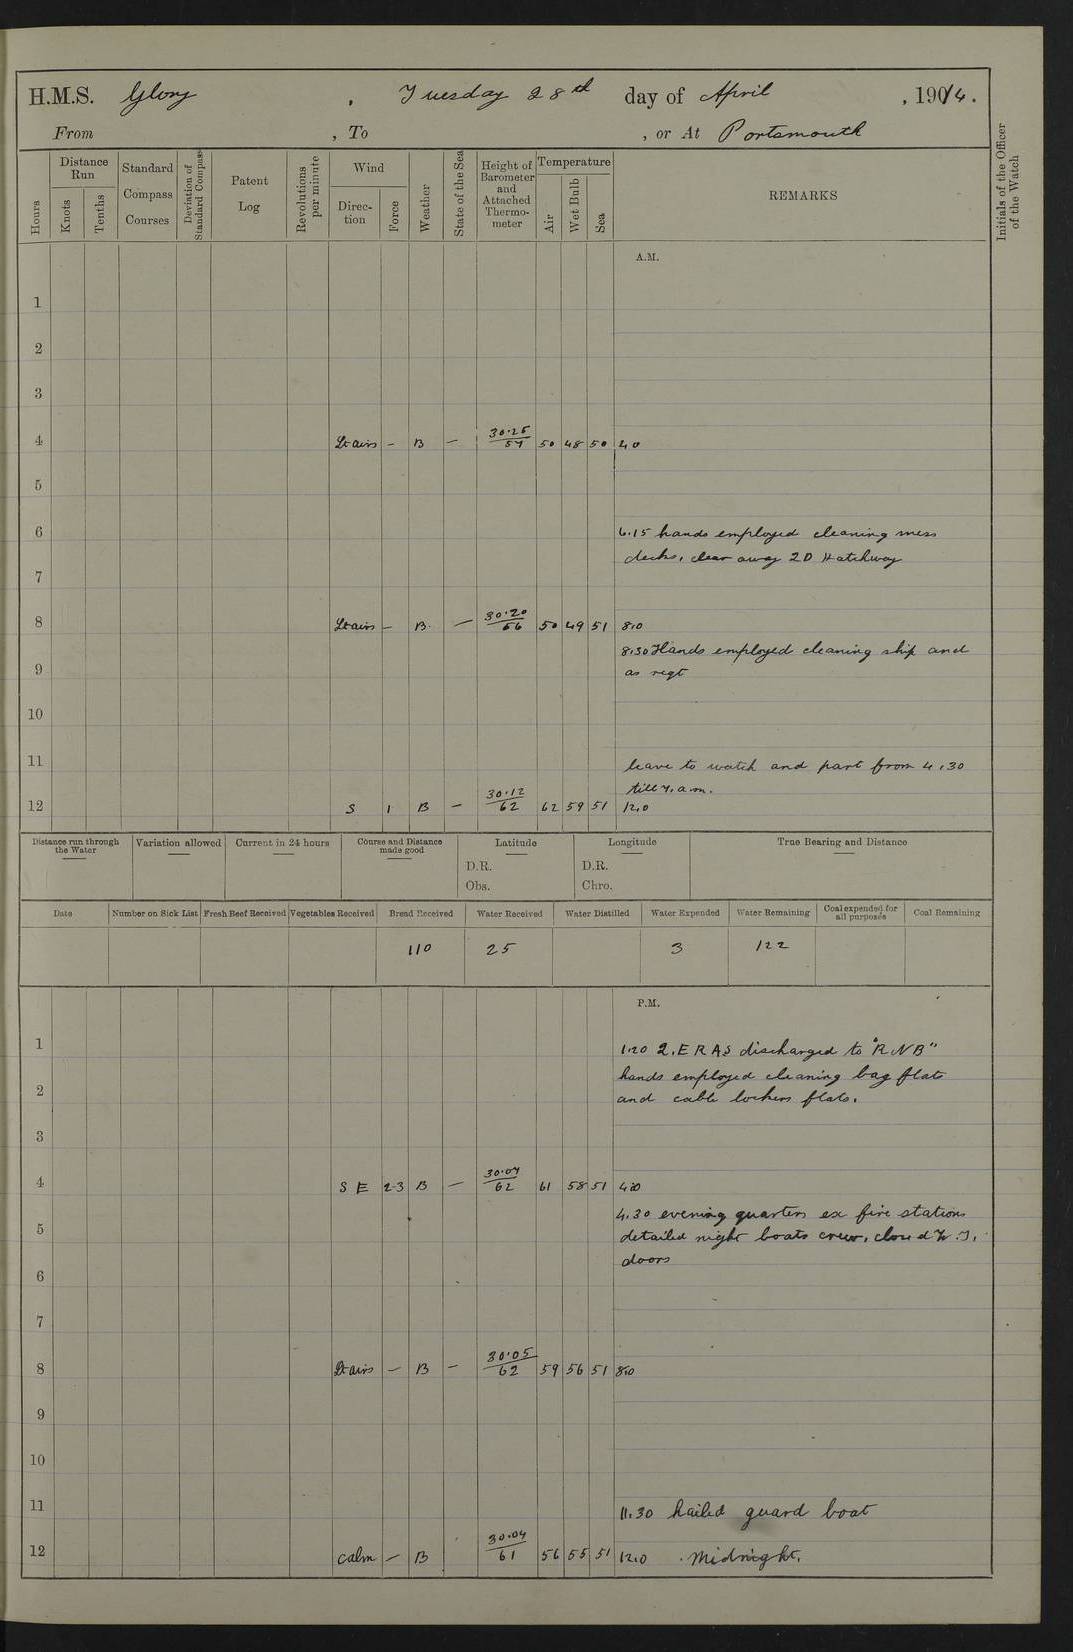 H.M.S. Glory , Tuesday 28th day of April , 1914.
From , To , or At Portsmouth
Hours
Distance Run
Knots
Tenths
Standard Compass Courses
Deviation of Standard Compass
Patent Log
Revolutions per minute
Wind
Direc-tion
Force
Weather
State of the Sea
Height of Barometer and Attached Thermo-meter
Temperature
Air
Wet Bulb
Sea
REMARKS
Initials of the Officer of the Watch
A.M.
1
2
3
4 Lt airs – B – 30.25/57 50 48 50 4.0
5
6 6.15 hands employed cleaning mess
decks, clear away 2D Hatchway
7
8 Lt airs – B. – 30.20/56 50 49 51 8.0
8.30 Hands employed cleaning ship and
9 as reqt
10
11 leave to watch and part from 4.30
till 7. a.m.
12 S 1 B – 30.12/62 62 59 51 12.0
Distance run through the Water
Variation allowed
Current in 24 hours
Course and Distance made good
Latitude
D.R.
Obs.
Longitude
D.R.
Chro.
True Bearing and Distance
Date Number on Sick List Fresh Beef Received Vegetables Received Bread Received Water Received Water Distilled Water Expended Water Remaining Coal expended for all purposes Coal Remaining
110 25 3 122
P.M.
1 1.20 2. ERAS discharged to "RNB"
hands employed cleaning bag flat
2 and cable lockers flats.
3
4 S E 2-3 B – 30.07/62 61 58 51 4.0
4.30 evening quarters ex fire stations
5 detailed night boats crew, closed W.T.
doors
6
7
8 Lt airs – B – 30.05/62 59 56 51 8.0
9
10
11 11.30 hailed guard boat
12 Calm – B 30.04/61 56 55 51 12.0 Midnight.